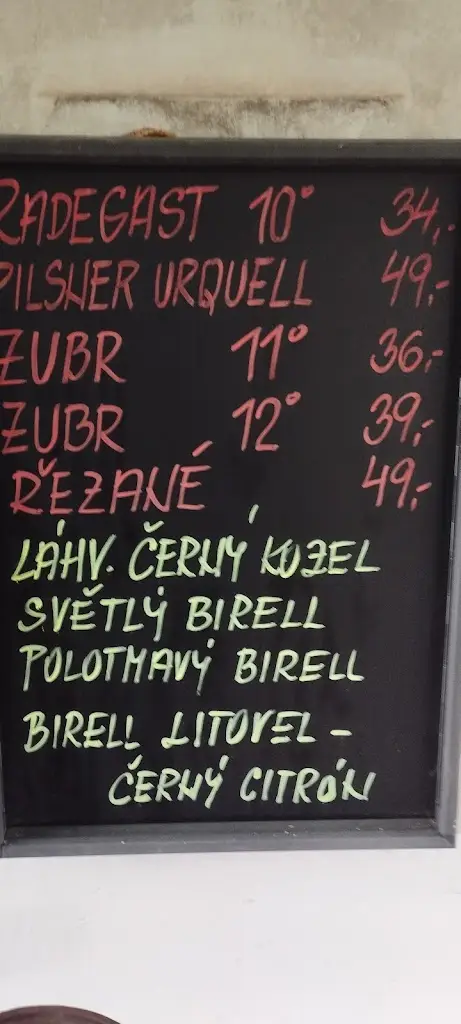 RADEGAST 10° 34,-
PILSNER URQUELL 49,-
ZUBR 11° 36,-
ZUBR 12° 39,-
ŘEZANÉ 49,-
LÁHV. ČERNÝ KOZEL
SVĚTLÝ BIRELL
POLOTMAVÝ BIRELL
BIRELL LITOVEL -
ČERNÝ CITRÓN